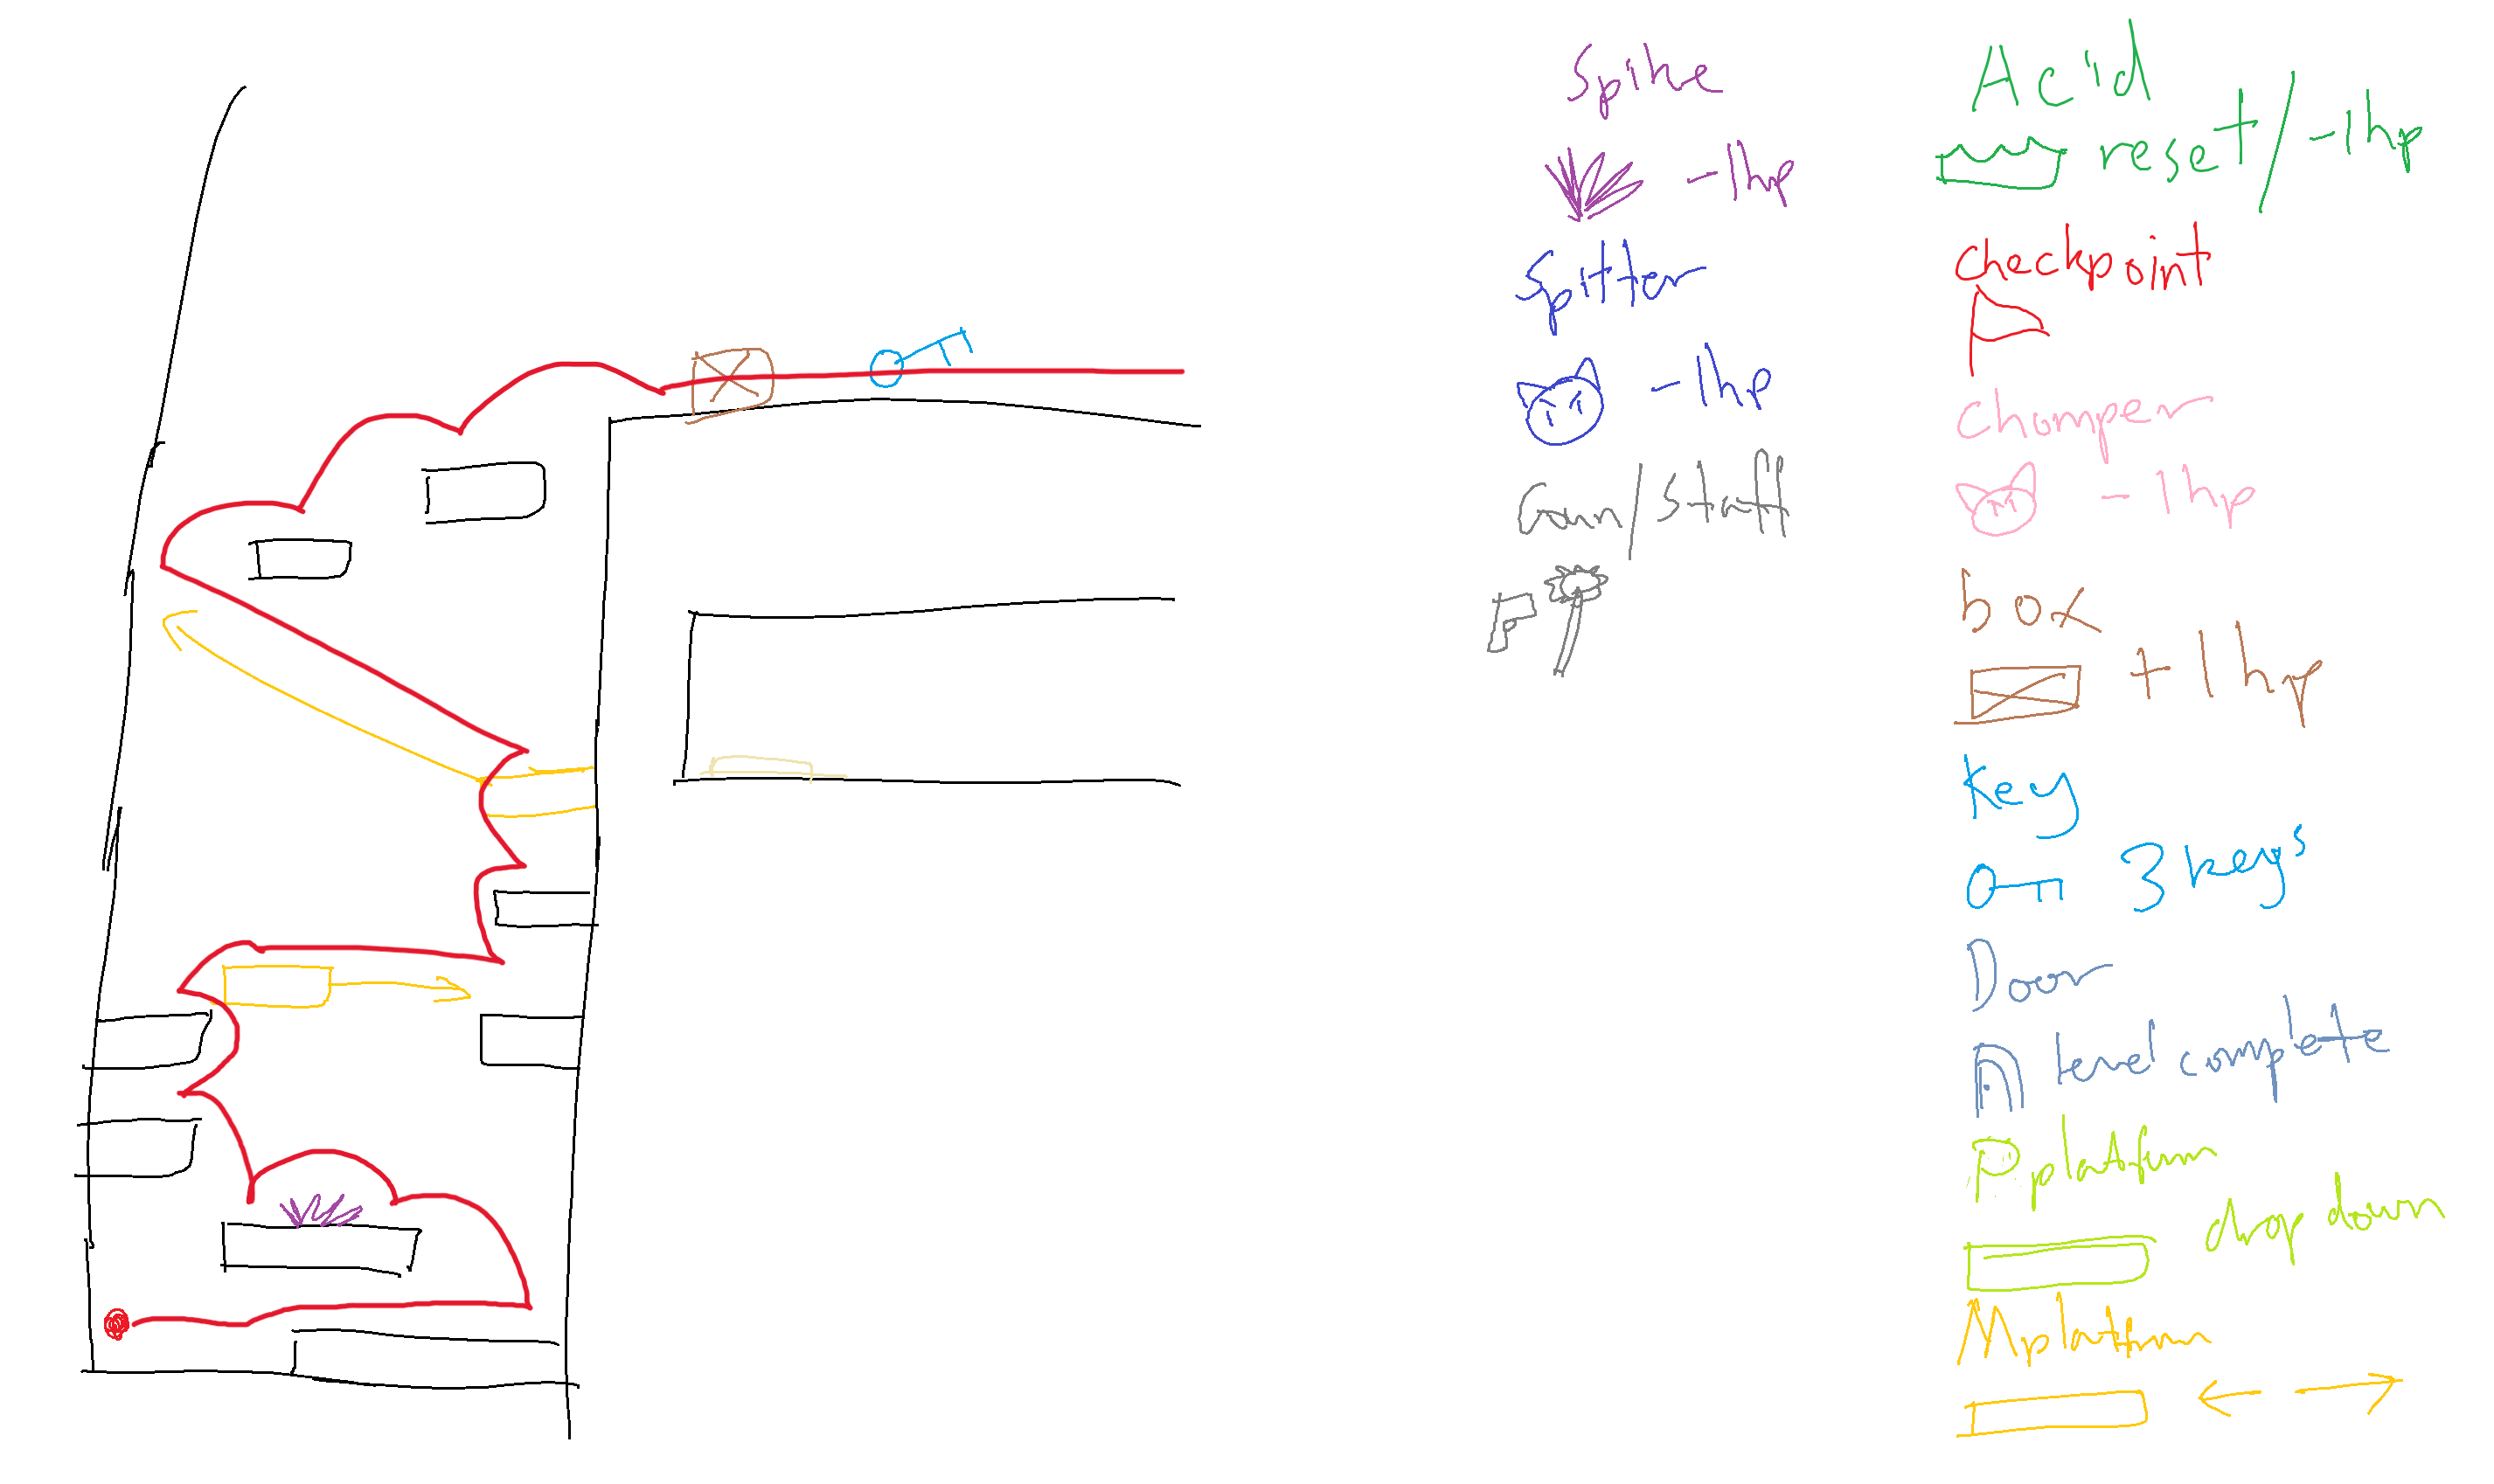 Spike
-1hp
Spitter
-1hp
Gun/Staff
Acid
reset/-1hp
checkpoint
Chomper
-1hp
box
+1hp
Key
3 keys
Door
level complete
Pplatform
drop down
Mplatform